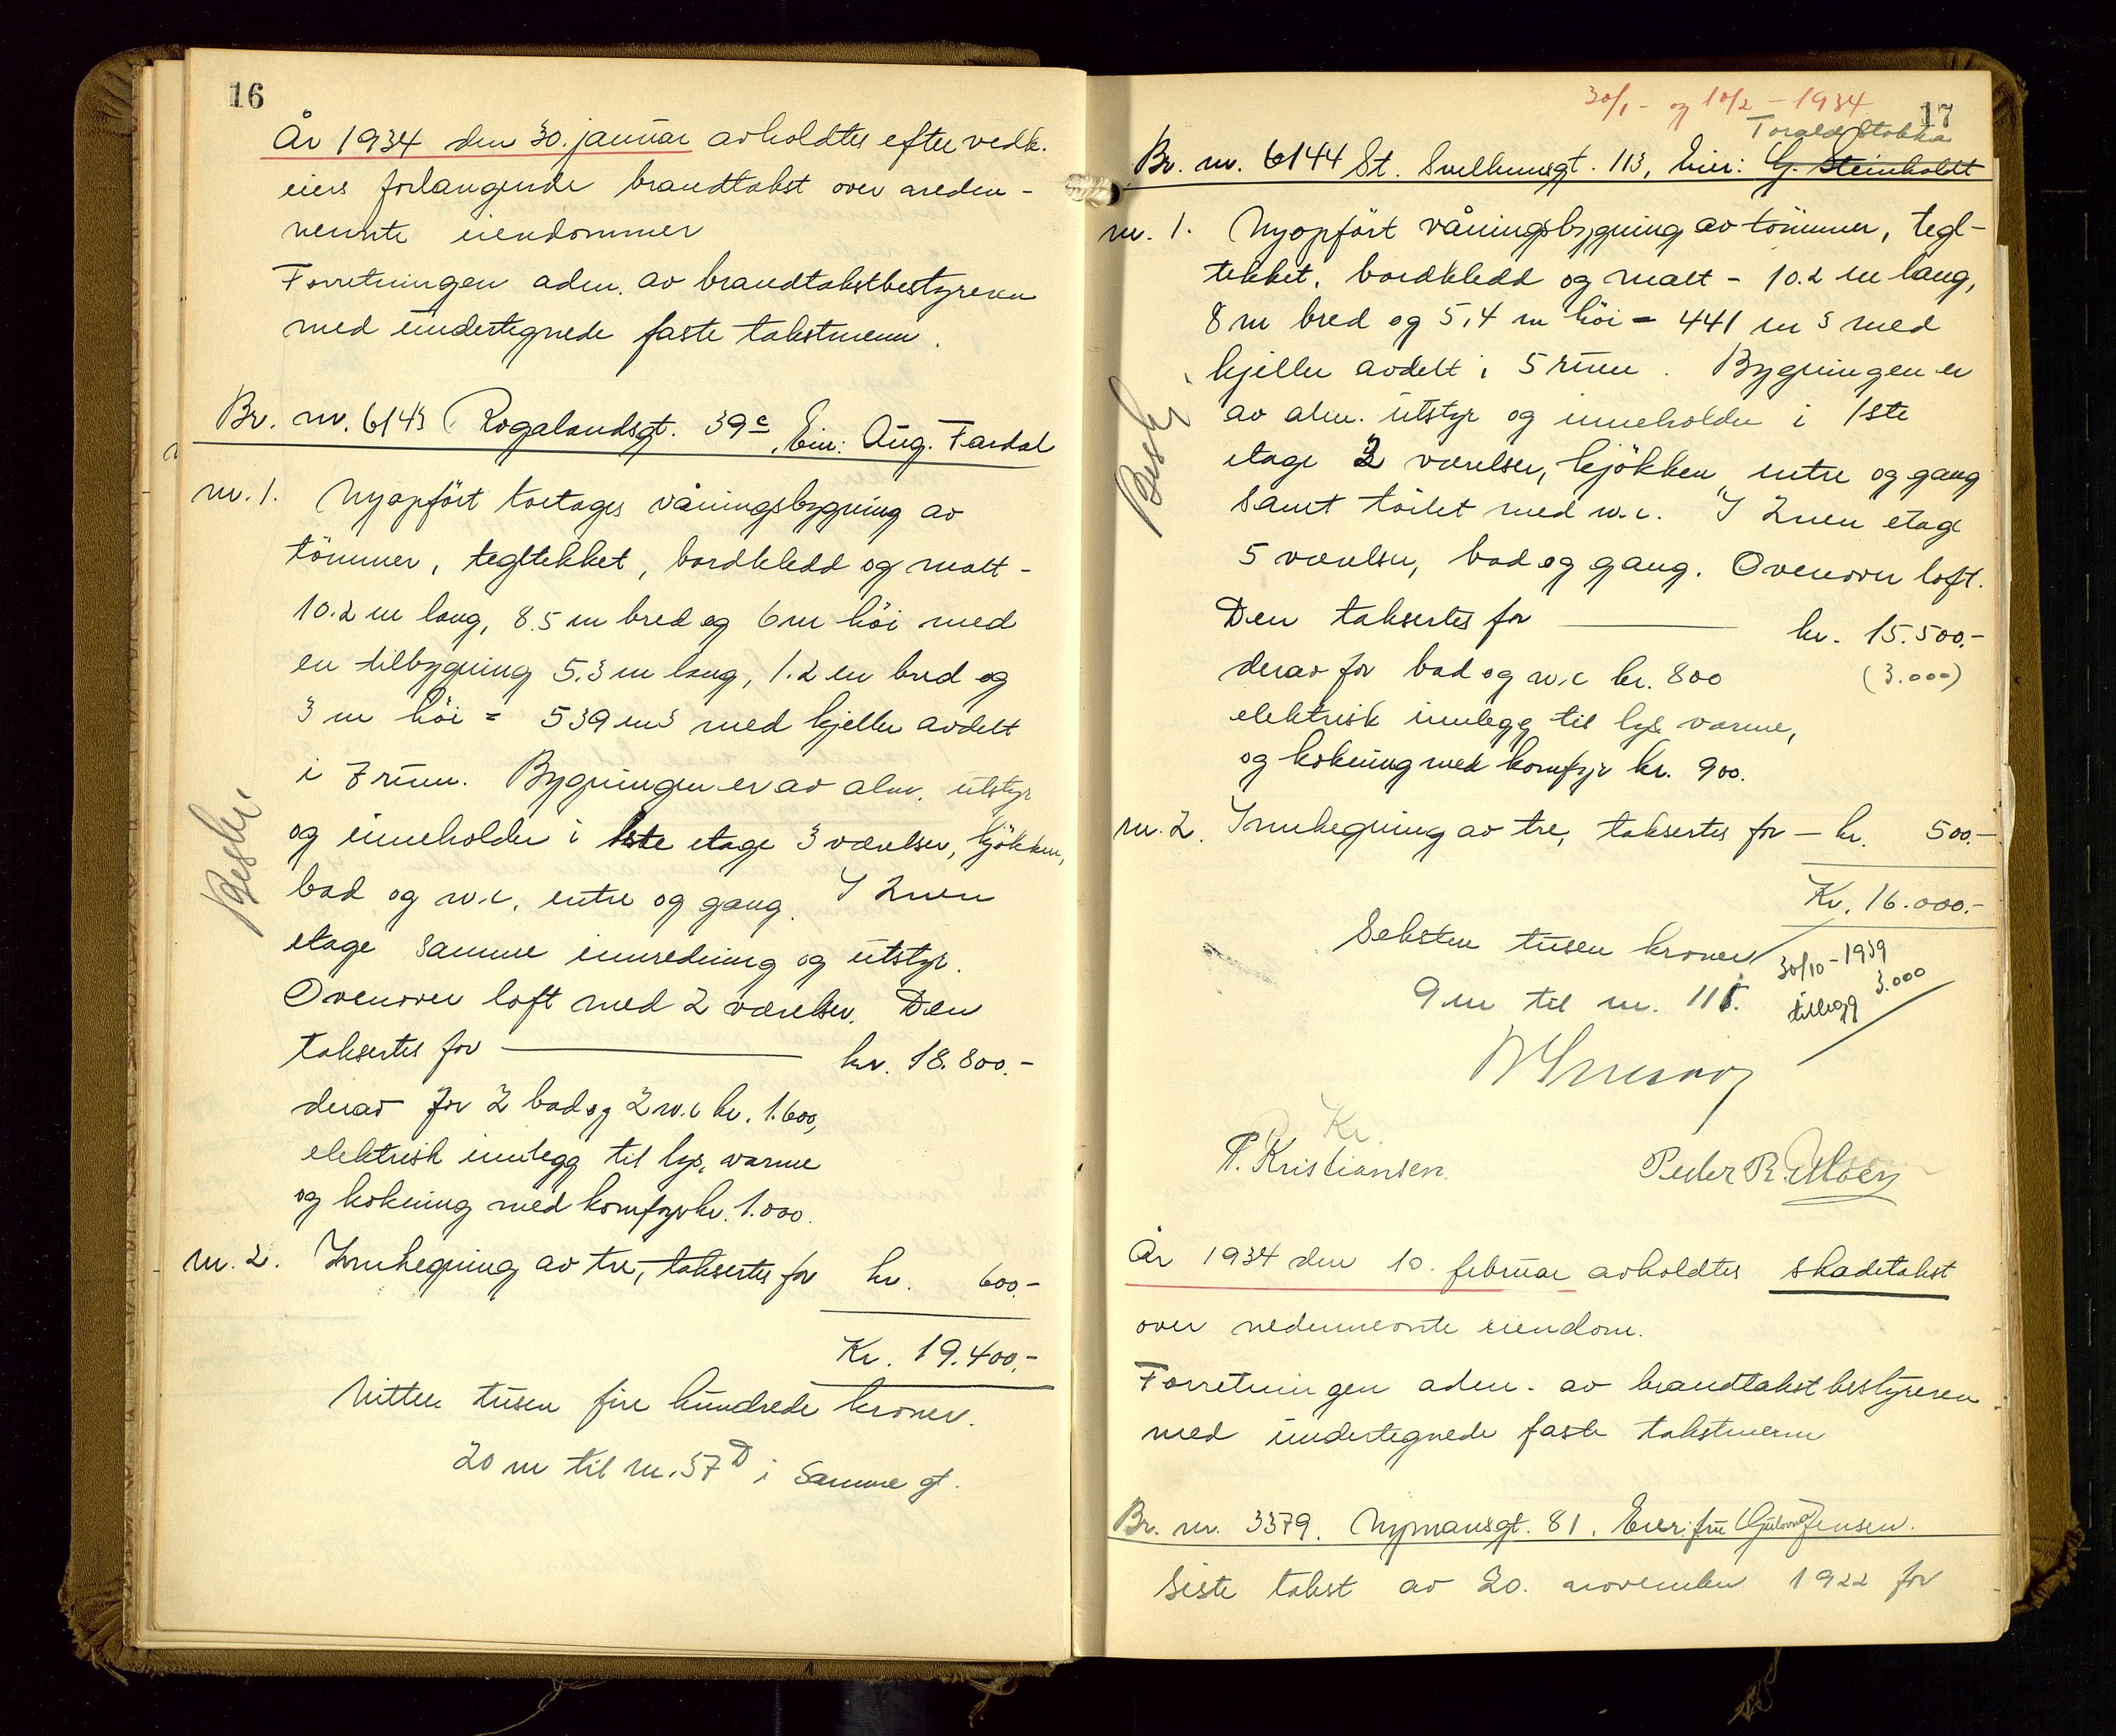 16
År 1934 den 30. januar avholdtes efter vedk.
eiers forlangende brandtakst over neden-
nevnte eiendommer
Forretningen adm. av brandtakstbestyreren
med undertegnede faste takstmenn.
Br. nr. 6143 Rogalandsgt. 39c, Eier: Aug. Fardal
nr. 1. Nyopført toetages våningsbygning av
tømmer, tegltekket, bordkledd og malt -
10.2 m lang, 8.5 m bred og 6 m høi med
en tilbygning 5.3 m lang, 1.2 m bred og
3 m høi = 539 m3 med kjeller avdelt
i 7 rum. Bygningen er av alm. utstyr
og inneholder i 1ste etage 3 værelser, kjøkken,
bad og w.c. entre og gang. I 2nen
etage samme innredning og utstyr.
Ovenover loft med 2 værelser. Den
taksertes for kr. 18.800.-
derav for 2 bad og 2 w.c kr. 1.600,
elektrisk innlegg til lys, varme
og kokning med komfyr kr. 1.000.
nr. 2. Innhegning av tre, taksertes for kr. 600.-
Kr. 19.400.-
Nitten tusen fire hundrede kroner.
20 m til nr. 37D i samme gt.
Beskr.
30/1- og 10/2 - 1934
17
Torald Stokka
Br. nr. 6144 St. Svithunsgt. 113, Eier: G. Steinholdt
nr. 1. Nyopført våningsbygning av tømmer, tegl-
tekket, bordkledd og malt - 10.2 m lang,
8 m bred og 5,4 m høi = 441 m3 med
kjeller avdelt i 5 rum. Bygningen er
av alm. utstyr og inneholder i 1ste
etage 2 værelser, kjøkken, entre og gang
samt toilet med w.c. I 2nen etage
5 værelser, bad og gang. Ovenover loft.
Den taksertes for kr. 15.500.-
derav for bad og w.c kr. 800 (3.000)
elektrisk innlegg til lys varme,
og kokning med komfyr kr. 900.
nr. 2. Innhegning av tre, taksertes for - kr. 500.-
Kr. 16.000.-
Seksten tusen kroner
30/10-1939
tillegg 3.000
9 m til nr. 115.
Beskr.
P. Kristiansen.
Peder R. Moen
År 1934 den 10. februar avholdtes skadetakst
over nedennevnte eiendom.
Forretningen adm. av brandtakstbestyreren
med undertegnede faste takstmenn
Br. nr. 3379. Nymansgt. 81, Eier: fru Gulovne Jensen.
Siste takst av 20. november 1922 for